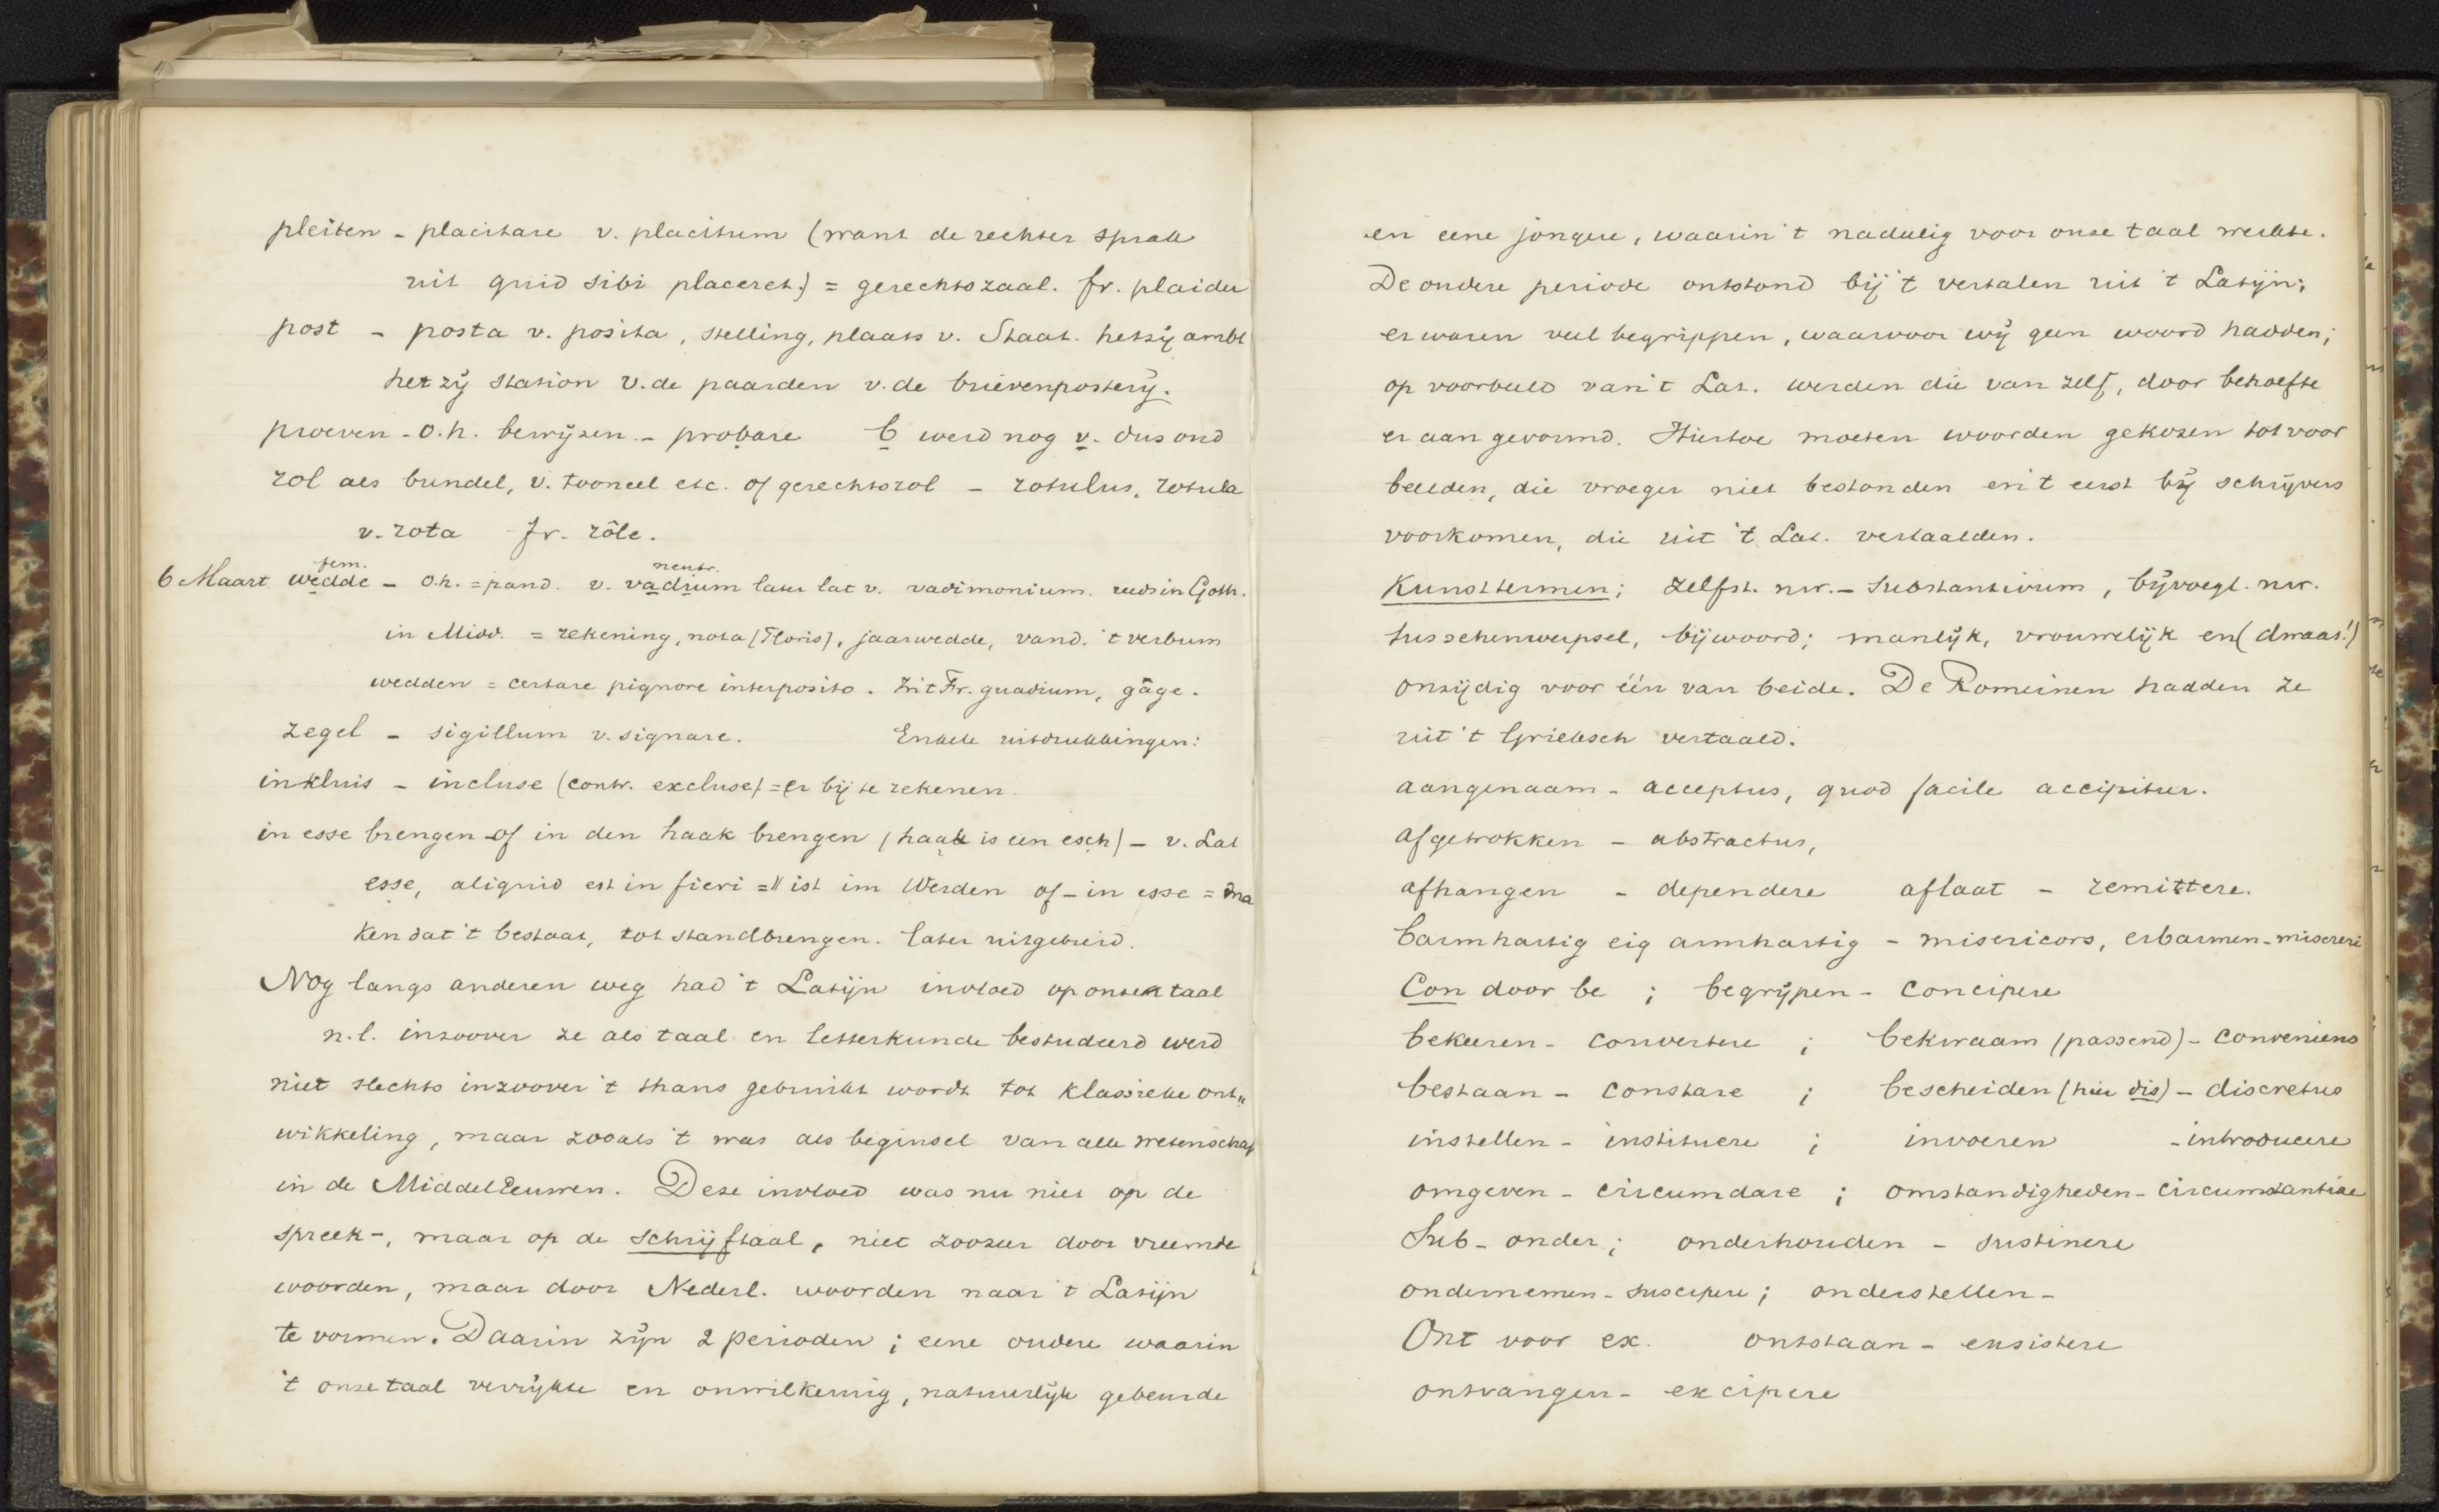 pleiten - placitare v. placitum (want de rechter sprak
uit quid sibi placeret) = gerechtszaal. fr. plaider
post - posta v. posita, stelling, plaats v. Staat. hetzij ambt
het zij station v. de paarden v. de brievenposterij.
proeven - o.h. bewijzen - probare b werd nog v. dus oud
rol als bundel, v. tooneel etc. of gerechtsrol - rotulus, rotula
v. rota fr. rôle.
fem. neutr.
6 Maart wedde - o.h. = pand. v. vadium later lat v. vadimonium. reeds in Goth.
in Midd. = rekening, nota (Floris), jaarwedde, vand. 't verbum
wedden = certare pignore interposito. Zit Fr. guadium, gâge.
zegel - sigillum v. signare. Enkele uitdrukkingen:
inkluis - incluse (contr. excluse) = er bij te rekenen.
in esse brengen of in den haak brengen (haak is een esch) - v. Lat
esse, aliquid est in fieri = ist im Werden of - in esse = ma
ken dat 't bestaat, tot standbrengen. later uitgebreid.
Nog langs anderen weg had 't Latijn invloed op onze taal
n.l. inzoover ze als taal en letterkunde bestudeerd werd
niet slechts inzoover 't thans gebruikt wordt tot klassieke ont„
wikkeling, maar zooals 't was als beginsel van alle wetenschap
in de Middeleeuwen. Deze invloed was nu niet op de
spreek-, maar op de schrijftaal, niet zoozeer door vreemde
woorden, maar door Nederl. woorden naar 't Latijn
te vormen. Daarin zijn 2 perioden; eene oudere waarin
't onze taal verrijkte en onwilkeurig, natuurlijk gebeurde
en eene jongere, waarin 't nadeelig voor onze taal werkte.
De oudere periode ontstond bij 't vertalen uit 't Latijn;
er waren veel begrippen, waarvoor wij geen woord hadden;
op voorbeeld van 't Lat. werden die van zelf, door behoefte
er aan gevormd. Hiertoe moeten woorden gekozen tot voor
beelden, die vroeger niet bestonden en 't eerst bij schrijvers
voorkomen, die uit 't Lat. vertaalden.
Kunsttermen; zelfst. nw. - Substantivum, bijvoegl. nw.
tusschenwerpsel, bijwoord; manlijk, vrouwelijk en (dwaas!)
onzijdig voor één van beide. De Romeinen hadden ze
uit 't Grieksch vertaald.
aangenaam - acceptus, quod facile accipitur.
afgetrokken - abstractus,
afhangen - dependere aflaat - remittere.
barmhartig eig armhartig - misericors, erbarmen - misereri
Con door be ; begrijpen - concipere
bekeeren - convertere ; bekwaam (passend) - conveniens
bestaan - constare ; bescheiden (hier dis) - discretus
instellen - instituere ; invoeren - introducere
omgeven - circumdare ; omstandigheden - circumstantiae
Sub - onder ; onderhouden - sustinere
ondernemen - suscipere ; onderstellen -
Ont voor ex. ontstaan - exsistere
ontvangen - excipere